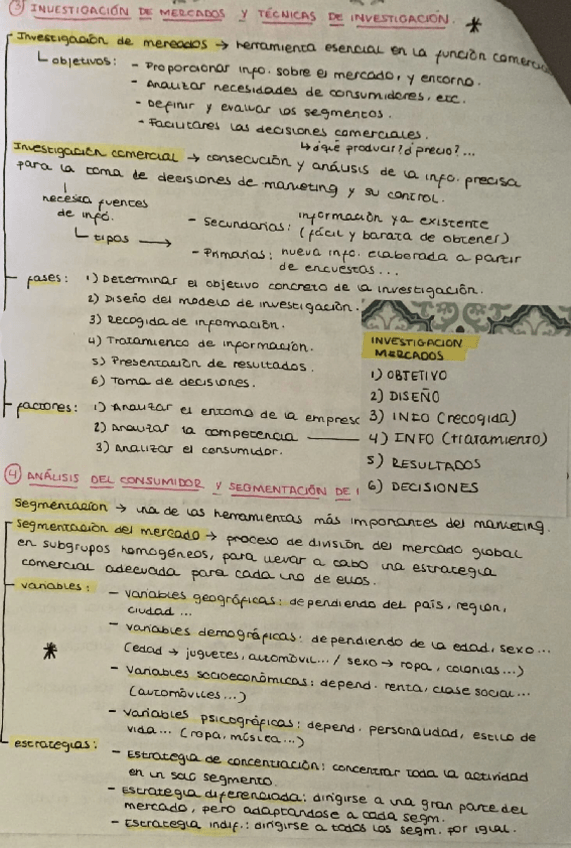 ③ INVESTIGACIÓN DE MERCADOS Y TÉCNICAS DE INVESTIGACIÓN. *
Investigación de mercados → herramienta esencial en la función
objetivos: - Proporcionar info. sobre el mercado, y entorno.
- Analizar necesidades de consumidores, etc.
- Definir y evaluar los segmentos.
- Facilitares las decisiones comerciales.
↳ ¿qué producir? ¿precio?...
Investigación comercial → consecución y análisis de la info. precisa
para la toma de decisiones de marketing y su control.
necesita fuentes
de info.
tipos →
- Secundarias: información ya existente
(fácil y barata de obtener)
- Primarias: nueva info. elaborada a partir
de encuestas...
fases: 1) Determinar el objetivo concreto de la investigación.
2) Diseño del modelo de investigación.
3) Recogida de información.
4) Tratamiento de información.
5) Presentación de resultados.
6) Toma de decisiones.
factores: 1) Analizar el entorno de la empresa
2) Analizar la competencia
3) Analizar el consumidor.
INVESTIGACION
MERCADOS
1) OBJETIVO
2) DISEÑO
3) INFO (recogida)
4) INFO (tratamiento)
5) RESULTADOS
6) DECISIONES
④ ANÁLISIS DEL CONSUMIDOR Y SEGMENTACIÓN DE
Segmentación → una de las herramientas más importantes del marketing.
Segmentación del mercado → proceso de división del mercado global
en subgrupos homogéneos, para llevar a cabo una estrategia
comercial adecuada para cada uno de ellos.
variables: - variables geográficas: dependiendo del país, región,
ciudad...
- variables demográficas: dependiendo de la edad, sexo...
(edad → juguetes, automóvil... / sexo → ropa, colonias...)
*
- Variables socioeconómicas: depend. renta, clase social...
(automóviles...)
- Variables psicográficas: depend. personalidad, estilo de
vida... (ropa, música...)
estrategias: - Estrategia de concentración: concentrar toda la actividad
en un solo segmento.
- Estrategia diferenciada: dirigirse a una gran parte del
mercado, pero adaptandose a cada segm.
- Estrategia indif.: dirigirse a todos los segm. por igual.